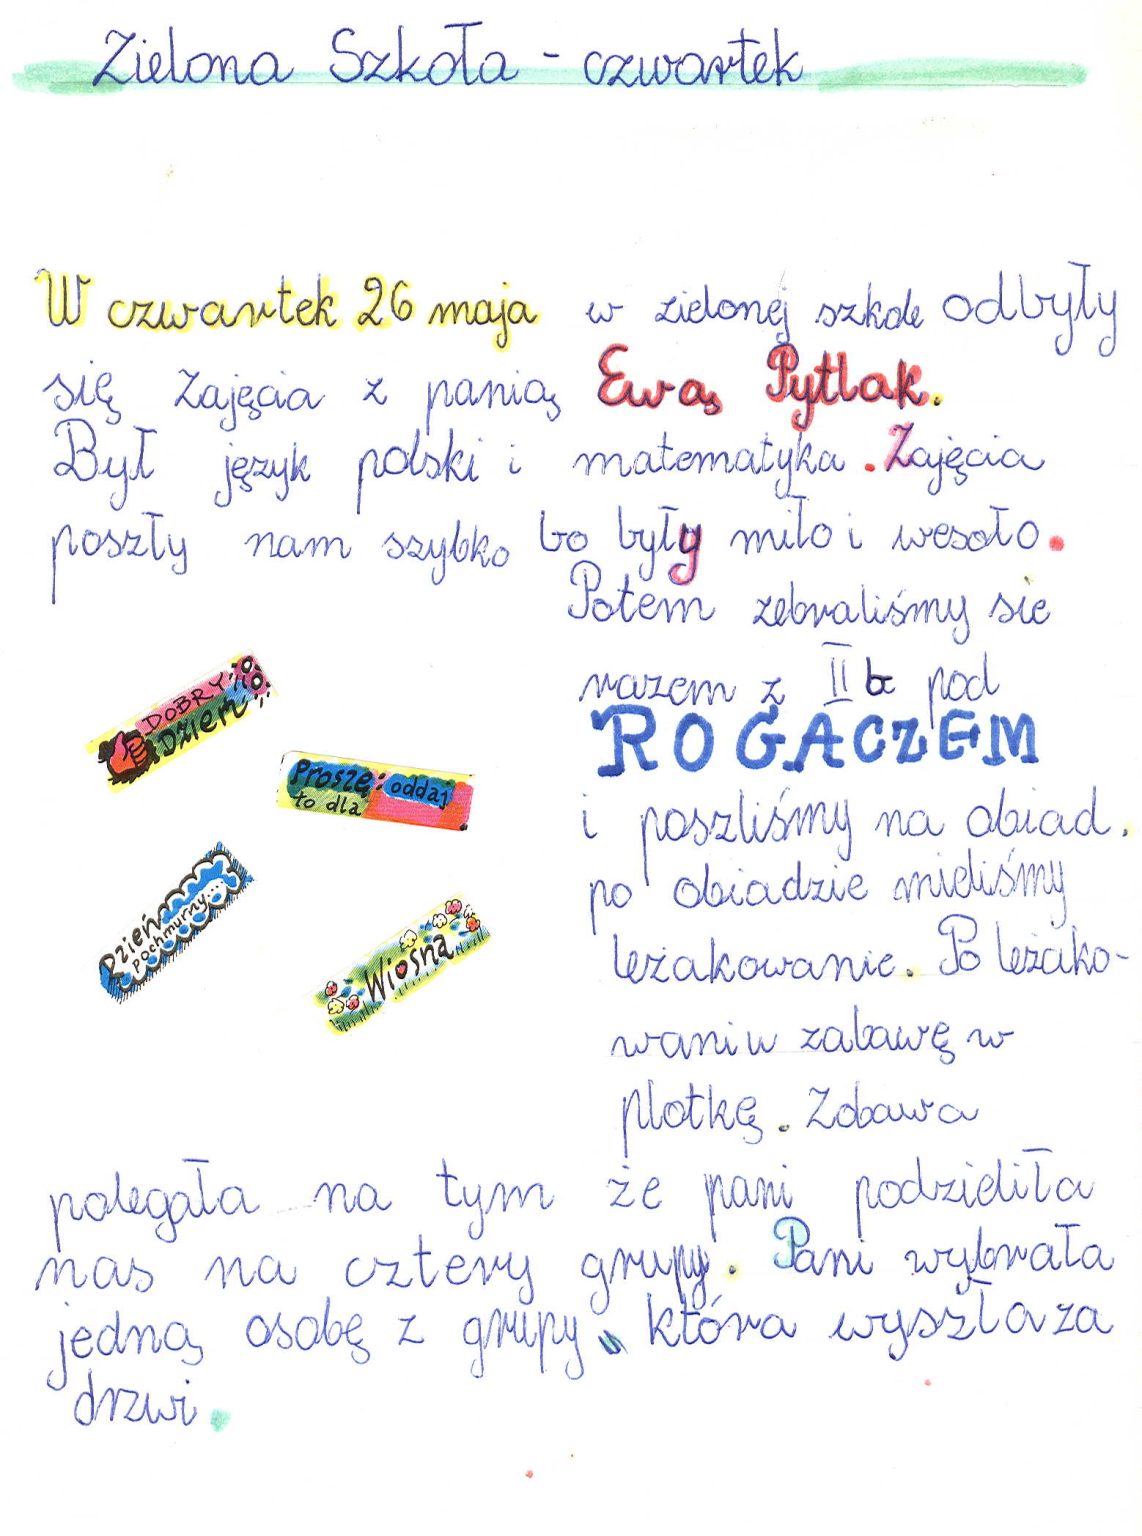 Zielona Szkoła - czwartek
W czwartek 26 maja w zielonej szkole odbyły
się zajęcia z panią Ewą Pytlak.
Był język polski i matematyka. Zajęcia
poszły nam szybko bo były miło i wesoło.
Potem zebraliśmy sie
razem z II b pod
ROGACZEM
i poszliśmy na obiad.
po obiadzie mieliśmy
leżakowanie. Po leżako-
waniu zabawę w
plotkę. Zabawa
polegała na tym że pani podzieliła
nas na cztery grupy. Pani wybrała
jedną osobę z grupy, która wyszła za
drzwi.
DOBRY
Dzień
Proszę: oddaj
to dla
Dzień
pochmurny...
Wiosna